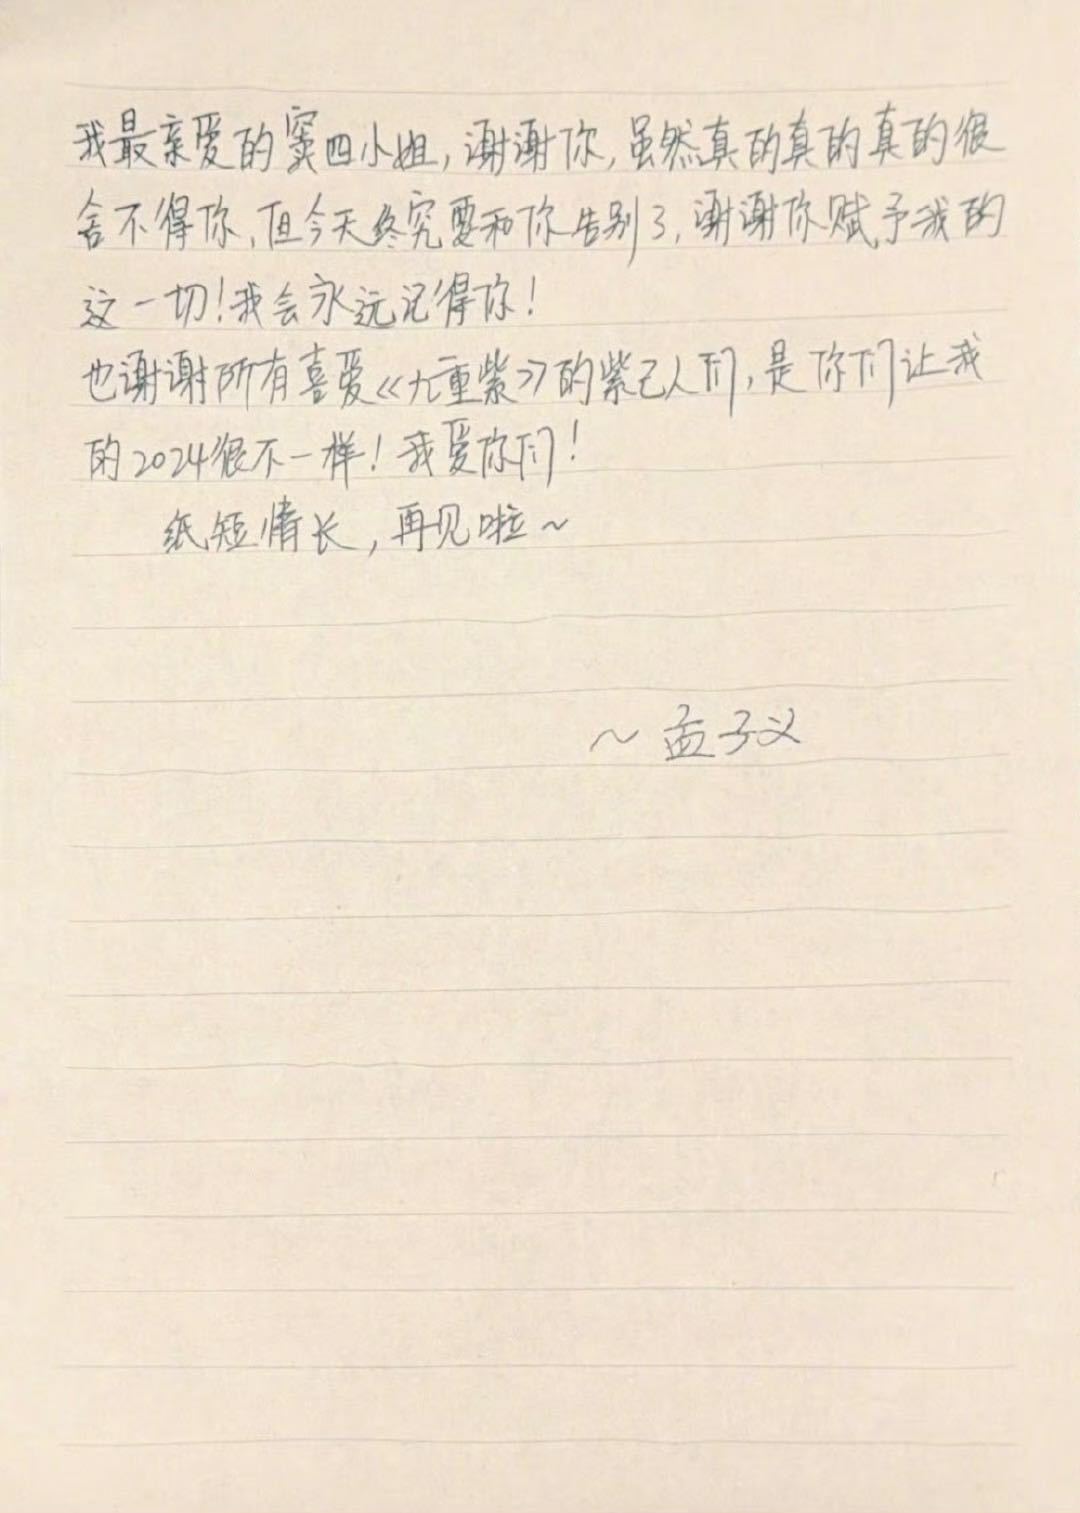 我最亲爱的窦四小姐,谢谢你,虽然真的真的真的很
舍不得你,但今天终究要和你告别了,谢谢你赋予我的
这一切!我会永远记得你!
也谢谢所有喜爱《九重紫》的紫己人们,是你们让我
的2024很不一样!我爱你们!
纸短情长,再见啦~
~孟子义